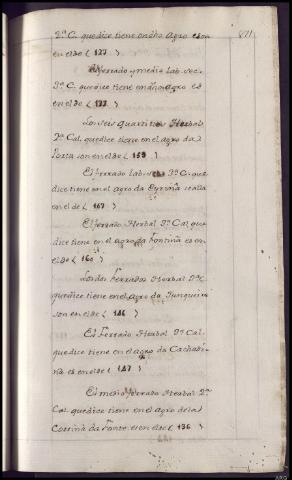 2ª C. que dice tiene en dho Agro es
en el de ( 127 )
El ferrado y medio Lab. sec.
3ª C. que dice tiene en agro es
en el de ( 133 )
Los seis quartillos Herbal
2ª Cal. que dice tiene en el agro da
Porta son en el de ( 159 )
El ferrado Lab. 3ª C. que
dice tiene en el agro da Eyriña se alla
en el de ( 167 )
El ferrado Herbal 3ª Cal que
dice tiene en el agro da Fontiña es en
el de ( 160 )
Los dos ferrados Herbal 3ª C.
que dice tiene en el Agro da Junqueira
son en el de ( 146 )
El Ferrado Herbal 3ª Cal.
que dice tiene en el agro da Cachadi-
ña es en el de ( 147 )
El medio ferrado Herbal 2ª
Cal que dice tiene en el agro de la
Cortiña da Fonte es en el de ( 136 )